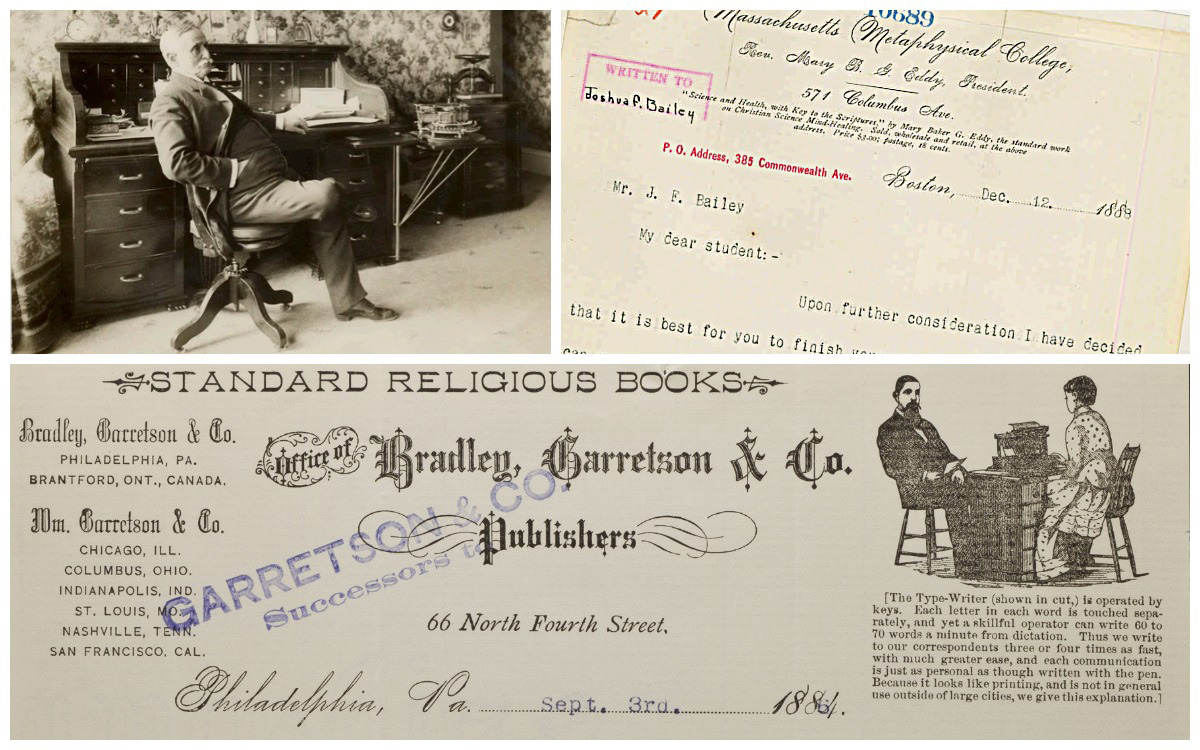 10689
Massachusetts Metaphysical College,
Rev. Mary B. G. Eddy, President.
571 Columbus Ave.
"Science and Health, with Key to the Scriptures," by Mary Baker G. Eddy, the standard work
on Christian Science Mind-Healing. Sold, wholesale and retail, at the above
address. Price $3.00; postage, 18 cents.
WRITTEN TO
Joshua F. Bailey
P. O. Address, 385 Commonwealth Ave.
Boston, Dec. 12. 1888
Mr. J. F. Bailey
My dear student:-
Upon further consideration I have decided
that it is best for you to finish
STANDARD RELIGIOUS BOOKS
Bradley, Garretson & Co.
PHILADELPHIA, PA.
BRANTFORD, ONT., CANADA.
Wm. Garretson & Co.
CHICAGO, ILL.
COLUMBUS, OHIO.
INDIANAPOLIS, IND.
ST. LOUIS, MO.
NASHVILLE, TENN.
SAN FRANCISCO, CAL.
Office of Bradley, Garretson & Co.
Publishers
GARRETSON & CO.
Successors to
66 North Fourth Street,
Philadelphia, Pa. Sept. 3rd. 1886.
[The Type-Writer (shown in cut,) is operated by
keys. Each letter in each word is touched sepa-
rately, and yet a skillful operator can write 60 to
70 words a minute from dictation. Thus we write
to our correspondents three or four times as fast,
with much greater ease, and each communication
is just as personal as though written with the pen.
Because it looks like printing, and is not in general
use outside of large cities, we give this explanation.]